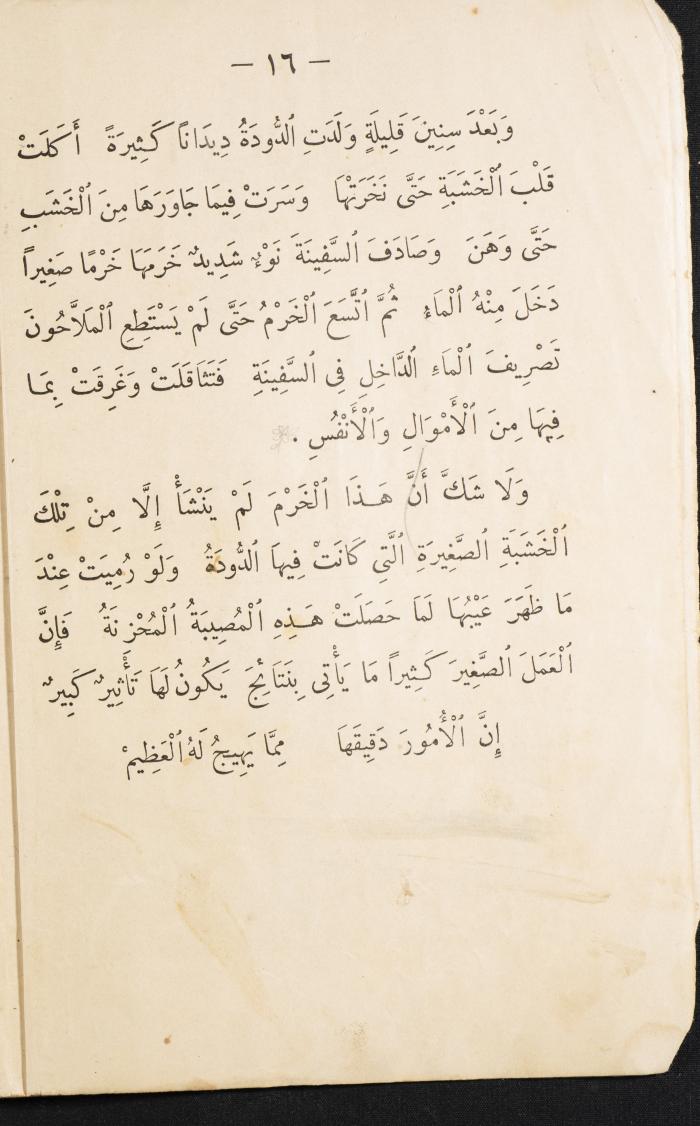 — ١٦ —
وَبَعْدَ سِنِينَ قَلِيلَةٍ وَلَدَتِ ٱلدُّودَةُ دِيدَانًا كَثِيرَةً أَكَلَتْ
قَلْبَ ٱلْخَشَبَةِ حَتَّى نَخَرَتْهَا وَسَرَتْ فِيمَا جَاوَرَهَا مِنَ ٱلْخَشَبِ
حَتَّى وَهَنَ وَصَادَفَ ٱلسَّفِينَةَ نَوْءٌ شَدِيدٌ خَرَمَهَا خَرْمًا صَغِيراً
دَخَلَ مِنْهُ ٱلْمَاءُ ثُمَّ ٱتَّسَعَ ٱلْخَرْمُ حَتَّى لَمْ يَسْتَطِعِ ٱلْمَلاَّحُونَ
تَصْرِيفَ ٱلْمَاءِ ٱلدَّاخِلِ فِى ٱلسَّفِينَةِ فَتَثَاقَلَتْ وَغَرِقَتْ بِمَا
فِيهَا مِنَ ٱلْأَمْوَالِ وَٱلْأَنْفُسِ .
وَلَا شَكَّ أَنَّ هَذَا ٱلْخَرْمَ لَمْ يَنْشَأْ إِلَّا مِنْ تِلْكَ
ٱلْخَشَبَةِ ٱلصَّغِيرَةِ ٱلَّتِى كَانَتْ فِيهَا ٱلدُّودَةُ وَلَوْ رُمِيَتْ عِنْدَ
مَا ظَهَرَ عَيْبُهَا لَمَا حَصَلَتْ هَذِهِ ٱلْمُصِيبَةُ ٱلْمُحْزِنَةُ فَإِنَّ
ٱلْعَمَلَ ٱلصَّغِيرَ كَثِيراً مَا يَأْتِى بِنَتَائِجَ يَكُونُ لَهَا تَأْثِيرٌ كَبِيرٌ
إِنَّ ٱلْأُمُورَ دَقِيقَهَا مِمَّا يَهِيجُ لَهُ ٱلْعَظِيمْ